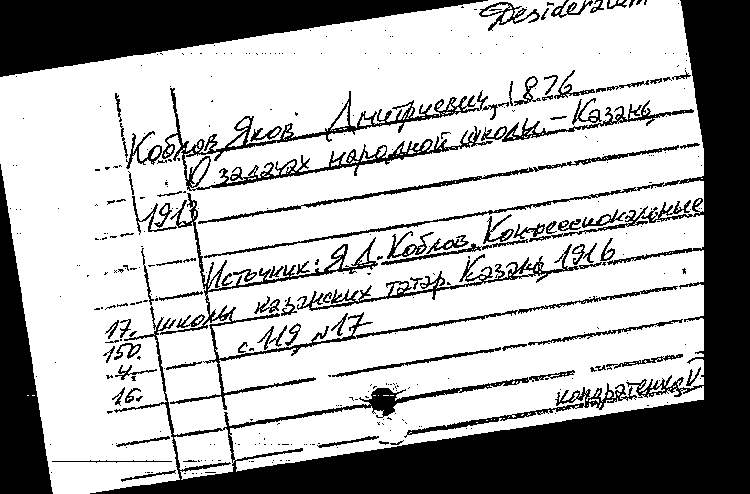 Desideratum
Коблов, Яков Дмитриевич, 1876
О задачах народной школы. – Казань,
1913
Источник: Я.Д. Коблов. Конфессиональные
школы казанских татар. Казань, 1916
с. 119, №17
17.
150.
4.
16.